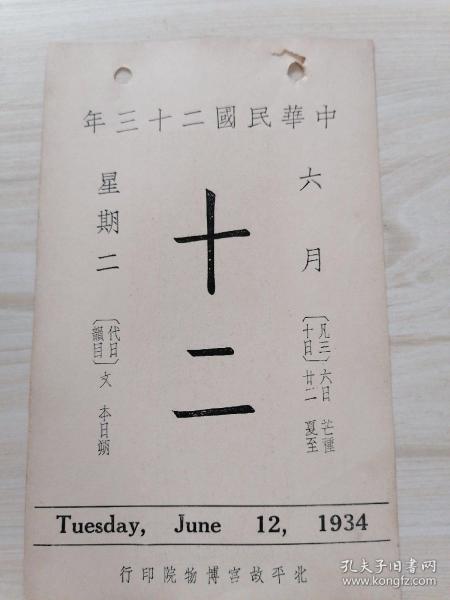 中華民國二十三年
六月
十二
星期二
〔凡三十日〕
六日 芒種
廿二 夏至
〔代日韻目〕 文 本日朔
Tuesday, June 12, 1934
北平故宮博物院印行
孔夫子旧书网